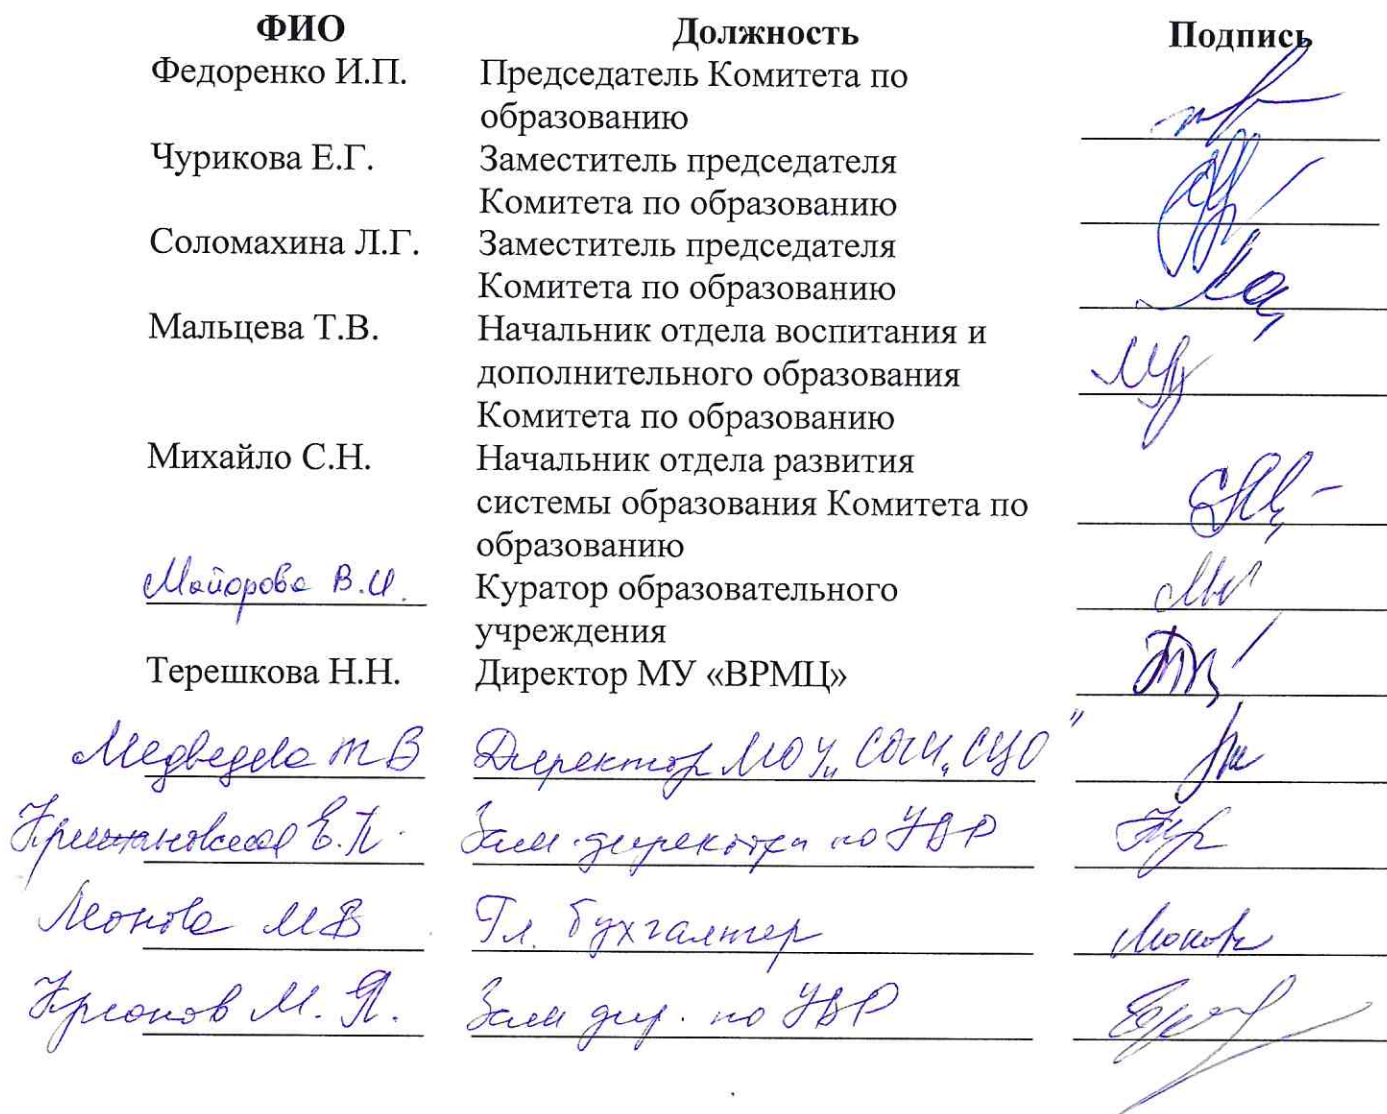 ФИО Должность Подпись
Федоренко И.П. Председатель Комитета по
образованию
Чурикова Е.Г. Заместитель председателя
Комитета по образованию
Соломахина Л.Г. Заместитель председателя
Комитета по образованию
Мальцева Т.В. Начальник отдела воспитания и
дополнительного образования
Комитета по образованию
Михайло С.Н. Начальник отдела развития
системы образования Комитета по
образованию
Майорова В.И. Куратор образовательного
учреждения
Терешкова Н.Н. Директор МУ «ВРМЦ»
Медведева Т В Директор МОУ „СОШ „СЦО"
Е.П. Зам. директора по УВР
Леонова М В Гл. бухгалтер
М. Я. Зам дир. по УВР